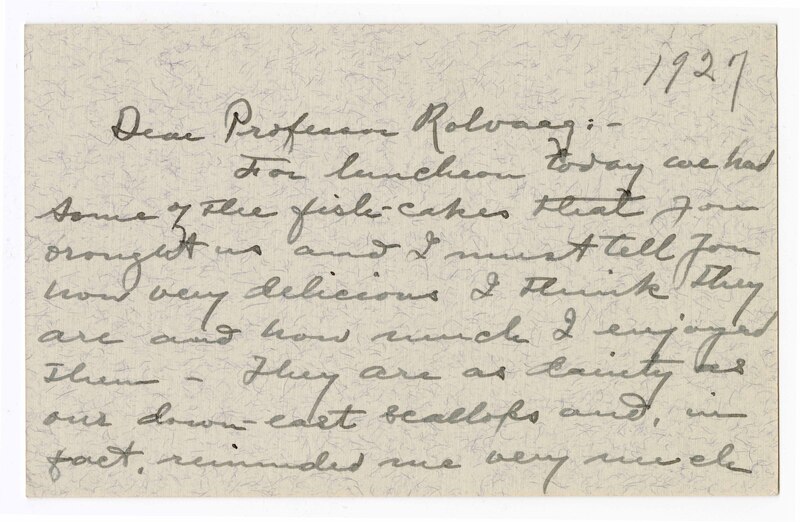 1927
Dear Professor Rolvaag:-
For luncheon today we had
some of the fish-cakes that you
brought us and I must tell you
how very delicious I think they
are and how much I enjoyed
them - They are as dainty as
our down-east scallops and, in
fact, reminded me very much